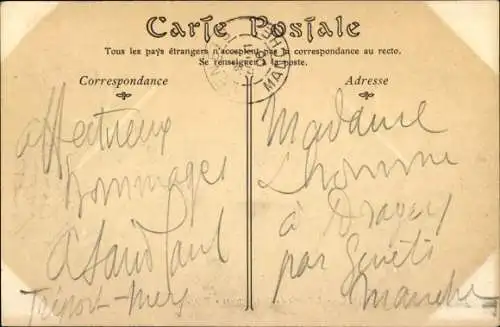 Carte Postale
Tous les pays étrangers n'acceptent pas la correspondance au recto.
Se renseigner à la poste.
Correspondance
Adresse
affectueux
hommages
Tréport-Mers
Madame
Lhomme
à Dragey
par Genêts
Manche
MANCHE